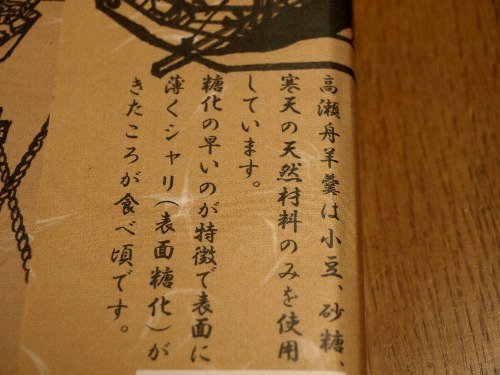 高瀬舟羊羹は小豆、砂糖、
寒天の天然材料のみを使用
しています。
糖化の早いのが特徴で表面に
薄くシャリ(表面糖化)が
きたころが食べ頃です。